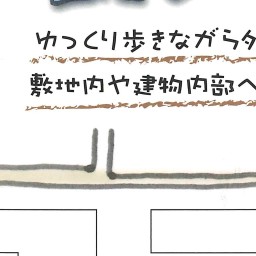 ゆっくり歩きながら
敷地内や建物内部へ